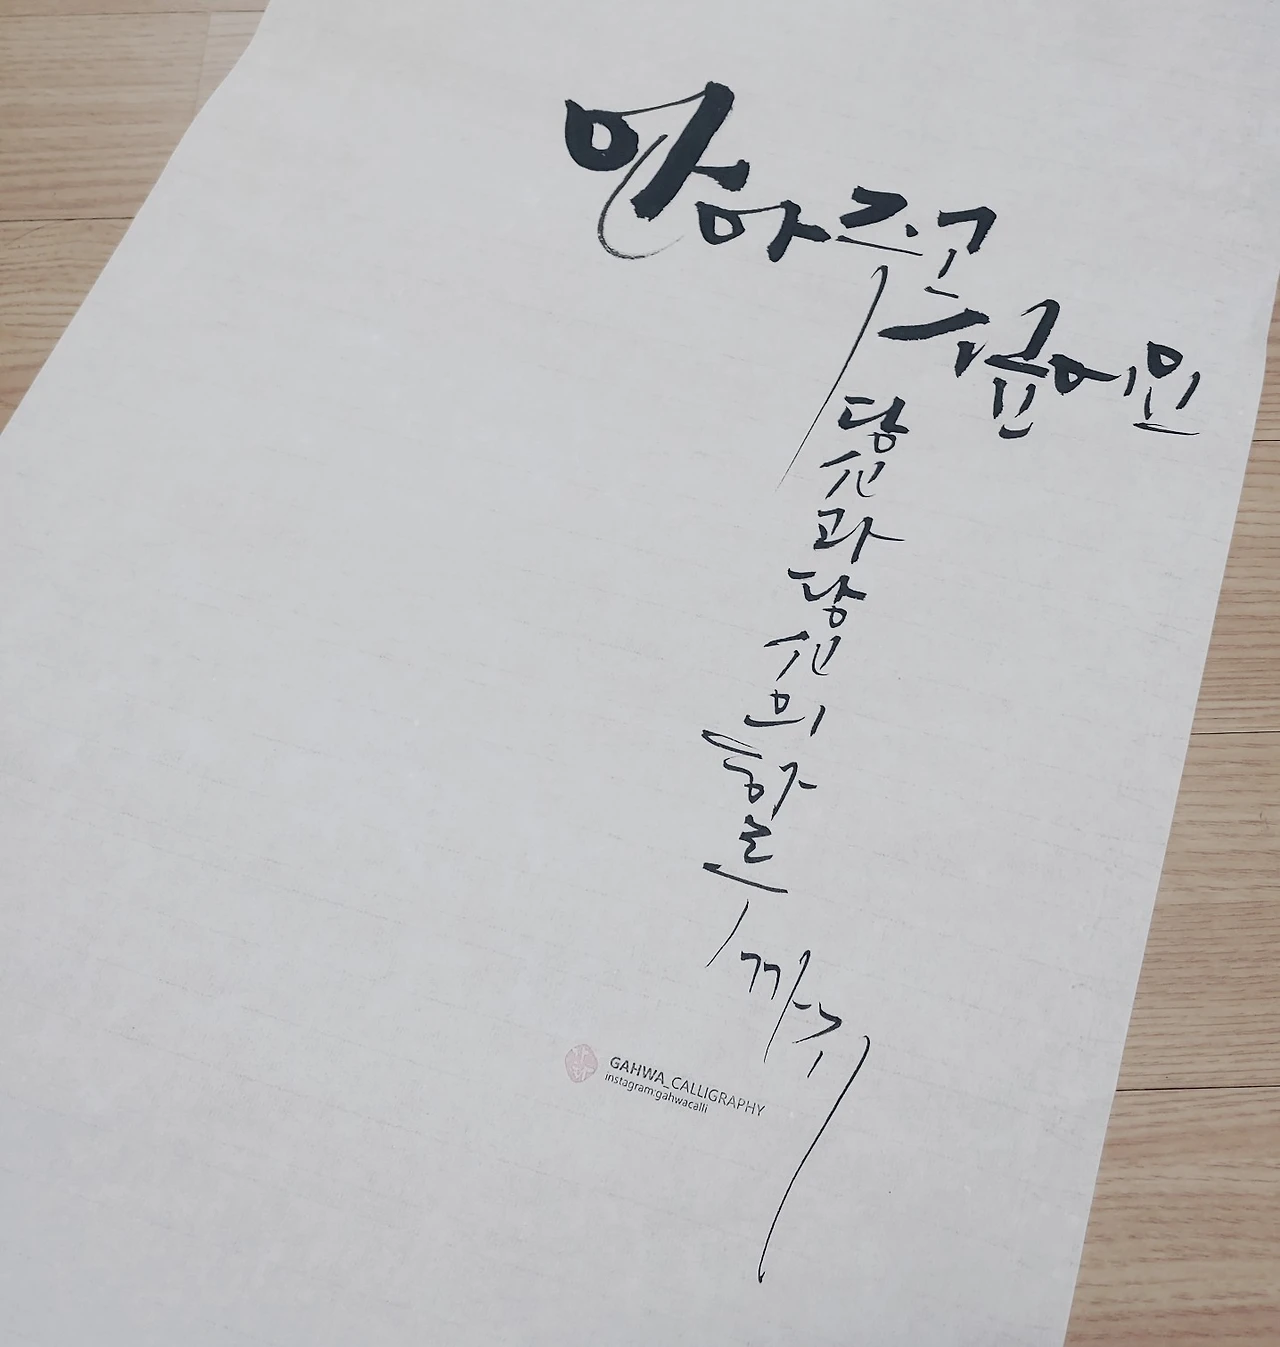 안아주고
싶어요
당신과
당신의
하루
까지
GAHWA_CALLIGRAPHY
instagram:gahwacalli